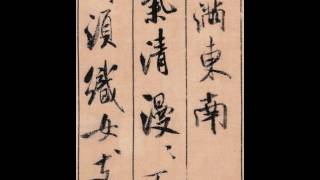 滿東南
氣清漫〻不
須織女支